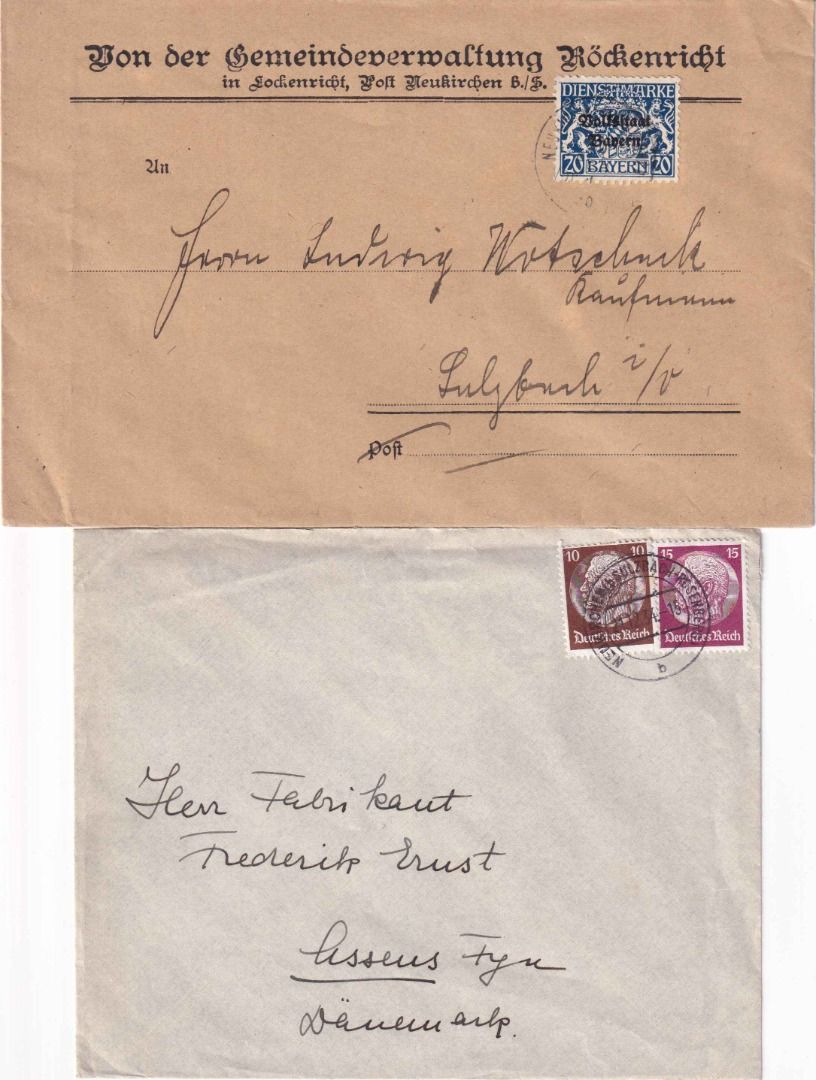 Von der Gemeindeverwaltung Röckenricht
in Lockenricht, Post Neukirchen b./S.
DIENSTMARKE
Volksstaat
Bayern
20 BAYERN 20
An
Herrn Ludwig Wotscheck
Kaufmann
Sulzbach i/O
Post
10 10
Deutsches Reich
15 15
Deutsches Reich
b
Herr Fabrikant
Frederik Ernst
Assens Fyn
Dänemark.